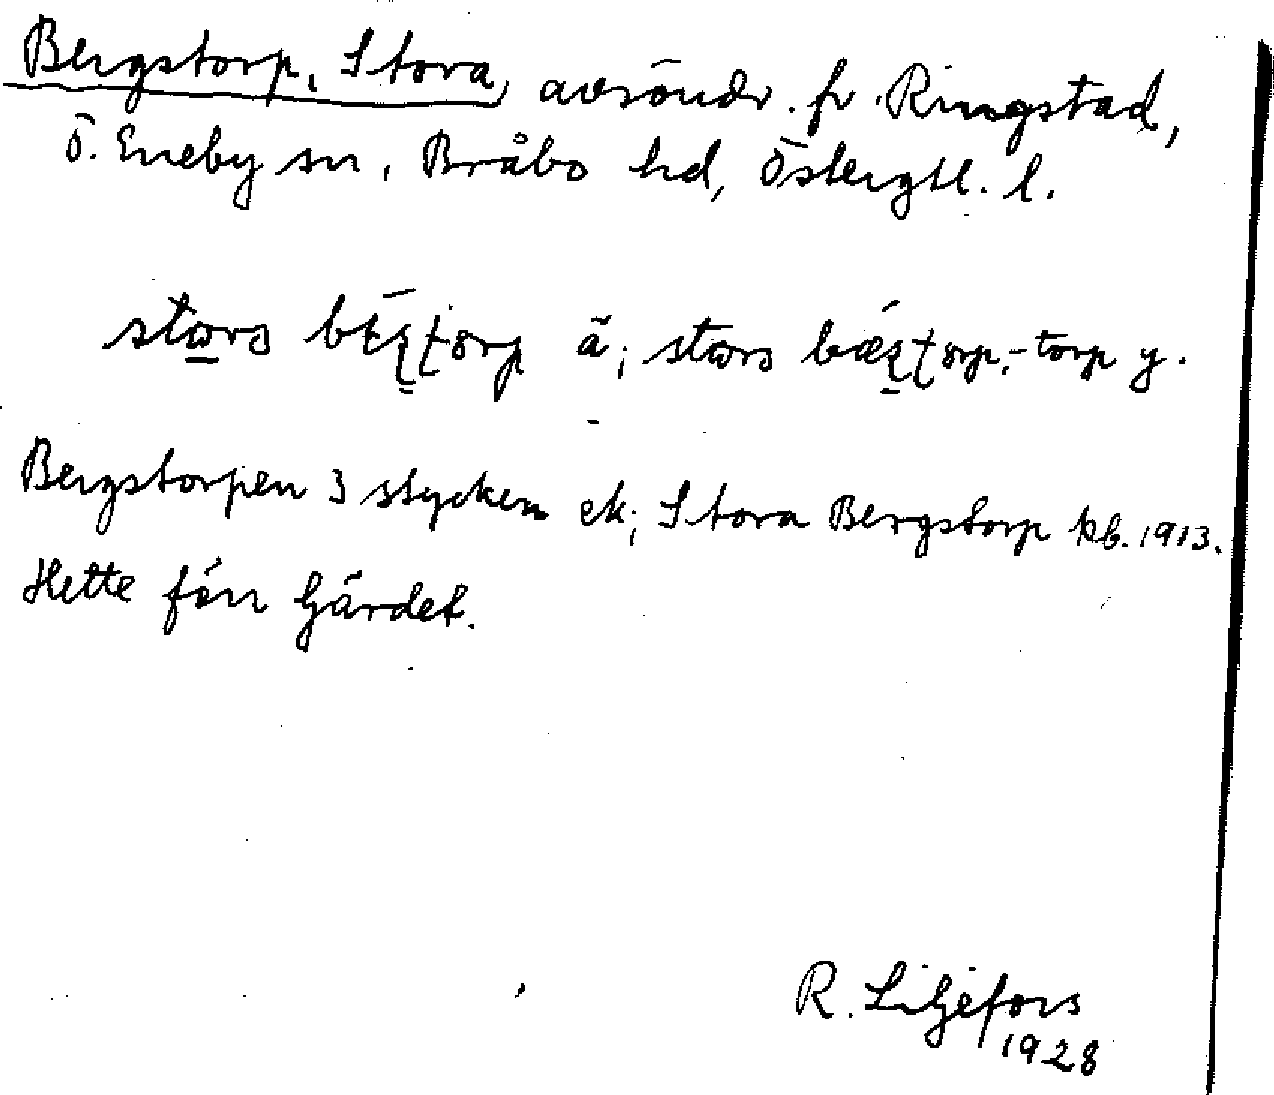 Bergstorp, Stora, avsöndr. fr. Ringstad,
Ö. Eneby sn, Bråbo hd, Östergtl. l.
ä; -torp y.
Bergstorpen 3 stycken ek; Stora Bergstorp kb. 1913.
Hette förr Gärdet.
R. Liljefors
1928